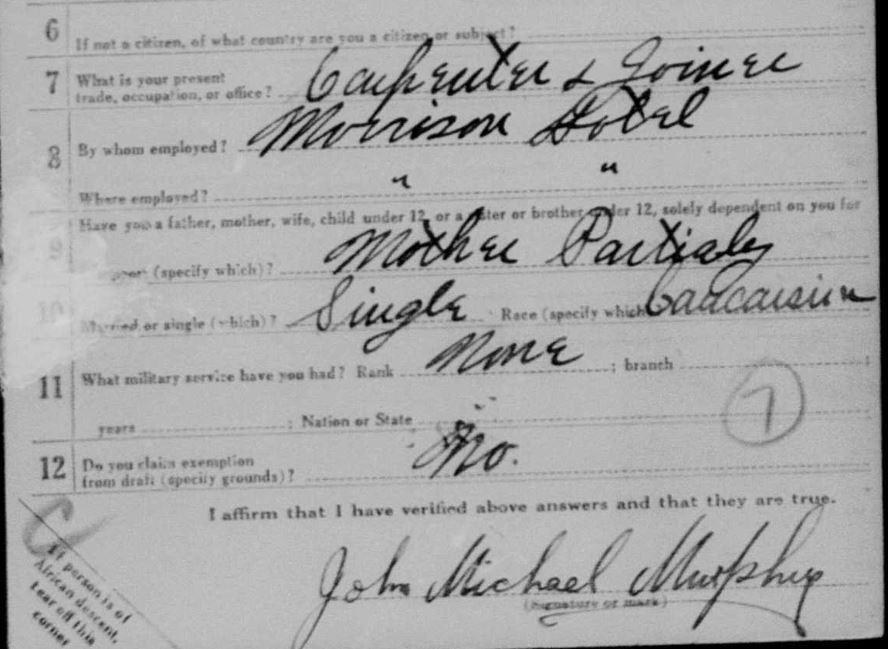 6 If not a citizen, of what country are you a citizen or subject?
7 What is your present
trade, occupation, or office? Carpenter & Joiner
8 By whom employed? Morrison Hotel
Where employed? " "
9 Have you a father, mother, wife, child under 12, or a sister or brother under 12, solely dependent on you for
support (specify which)? Mother Partialy
10 Married or single (which)? Single Race (specify which) Caucasian
11 What military service have you had? Rank None ; branch
years ; Nation or State
12 Do you claim exemption
from draft (specify grounds)? No.
7
I affirm that I have verified above answers and that they are true.
John Michael Murphy
(Signature or mark)
If person is of
African descent,
tear off this
corner